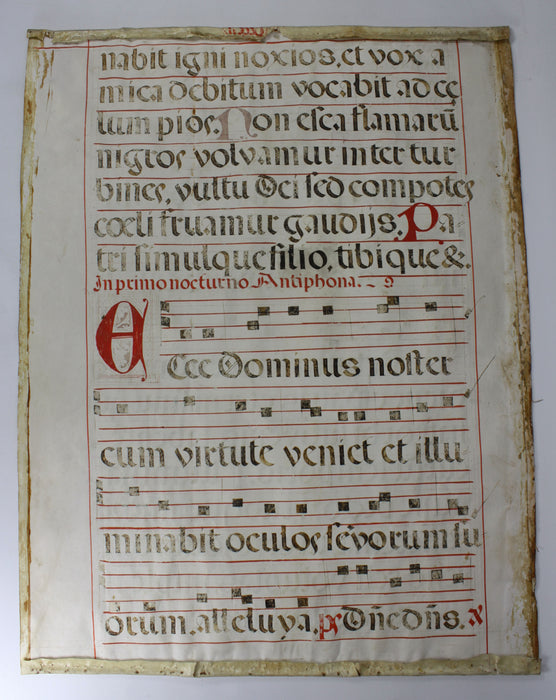 nabit igni noxios, et vox a
mica debitum vocabit ad cę
lum pios, Non esca flamarũ
nigros volvamur inter tur
bines, vultu Dei sed compotes
cœli fruamur gaudijs. Pa
tri simulque filio, tibique &.
In primo nocturno Antiphona.
Ecce Dominus noster
cum virtute veniet et illu
minabit oculos sẽvorum su
orum. alleluya. ps Dñe dñs.